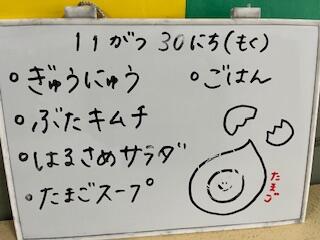 11がつ30にち(もく)
・ぎゅうにゅう
・ごはん
・ぶたキムチ
・はるさめサラダ
・たまごスープ
たまご